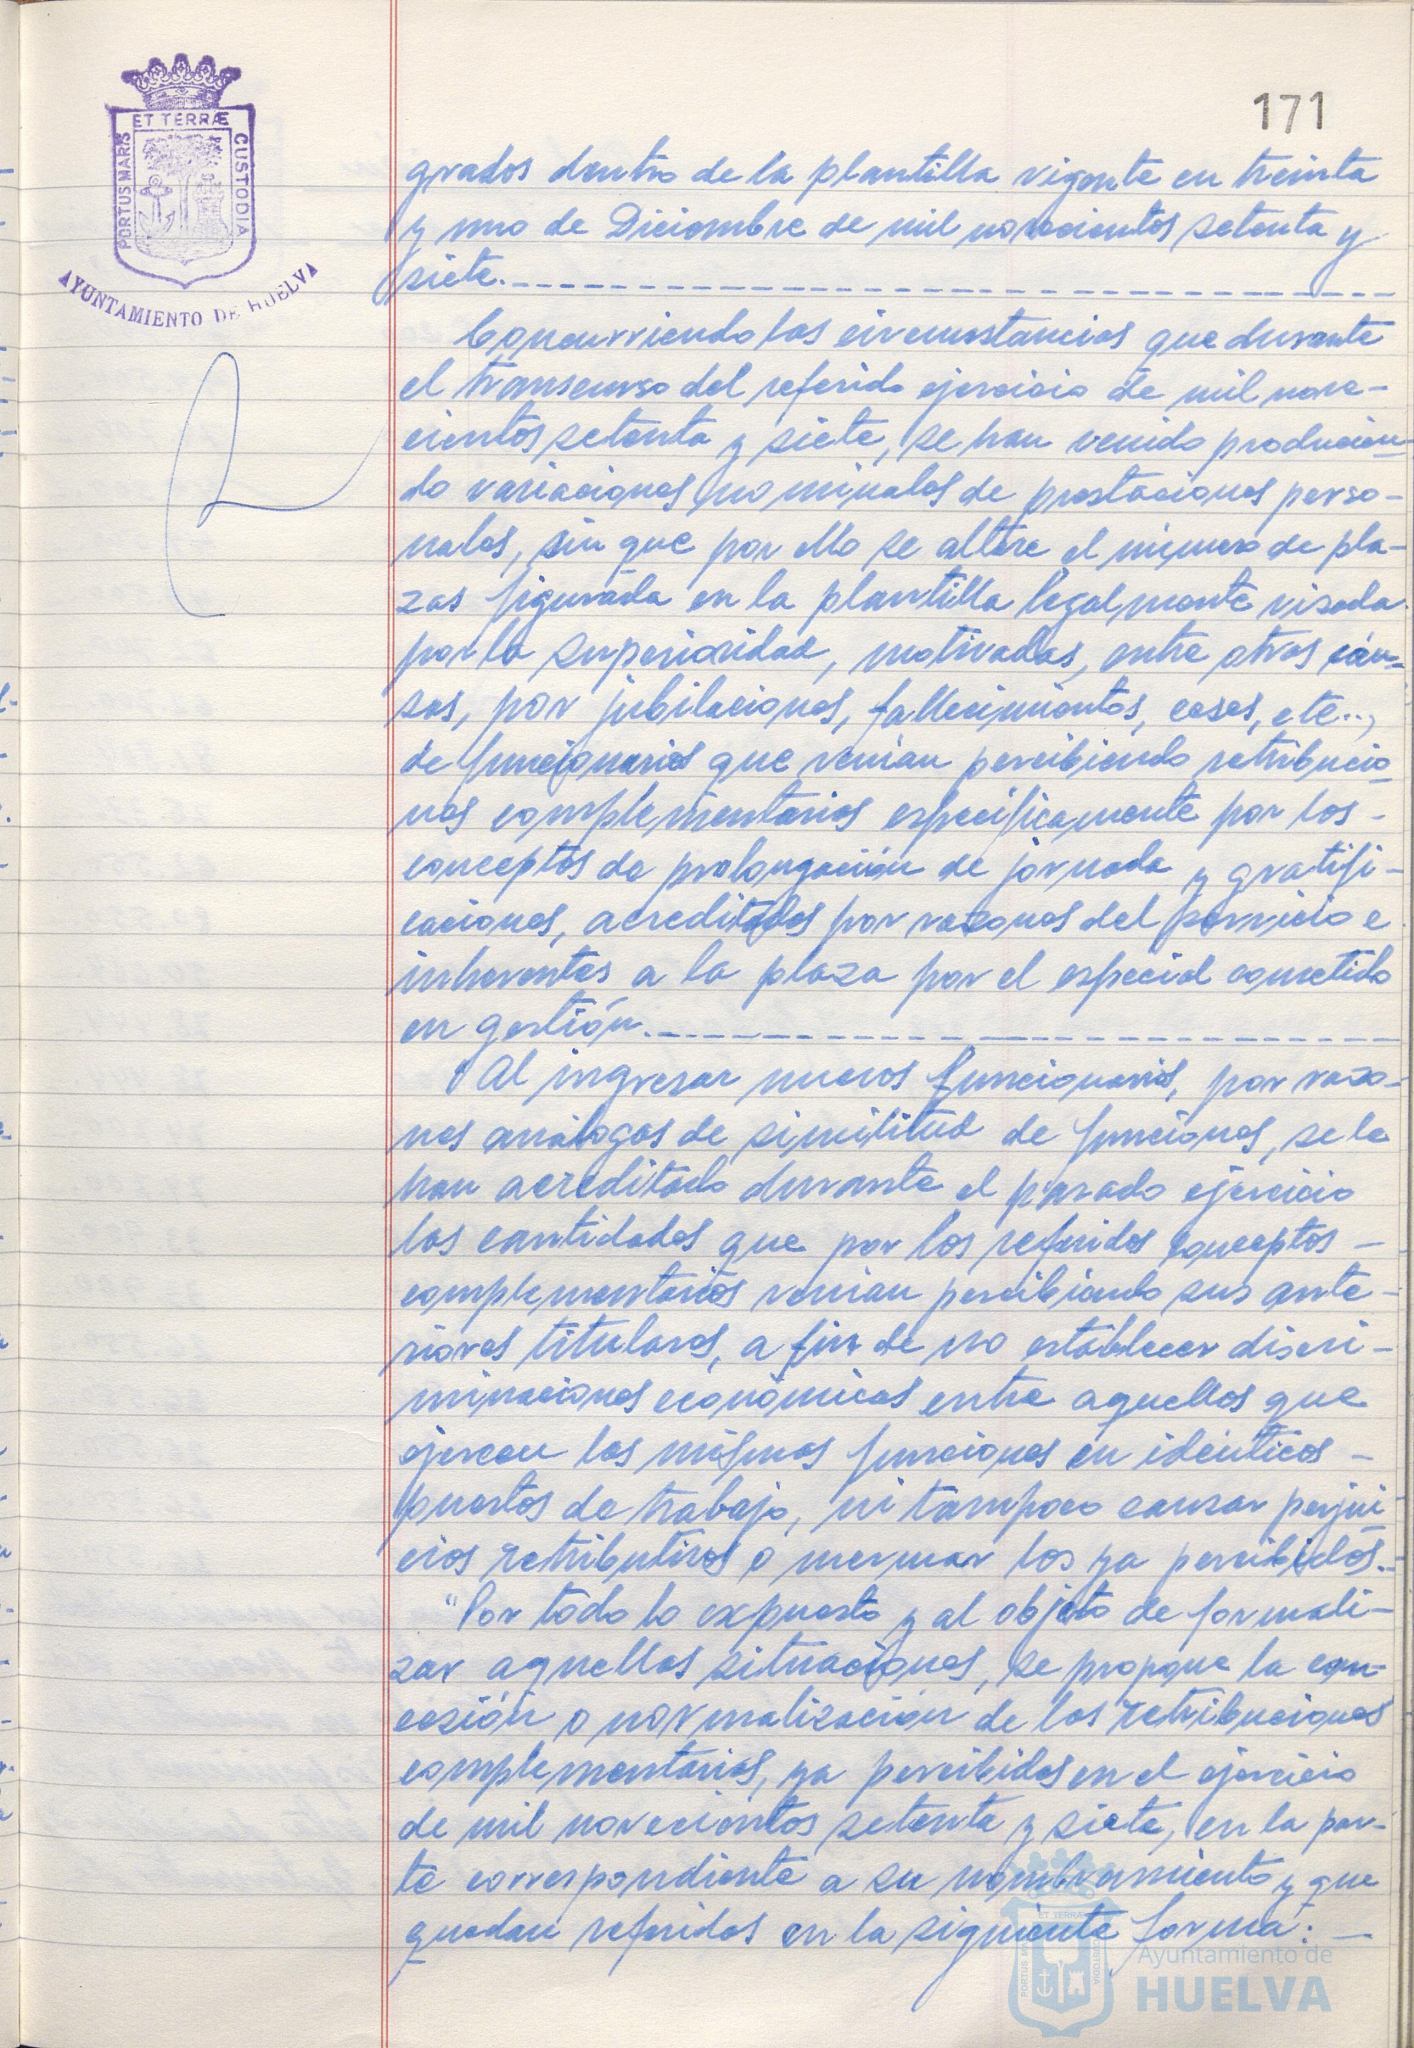 171
ET TERRÆ
PORTUS MARIS
CUSTODIA
AYUNTAMIENTO DE HUELVA
grados dentro de la plantilla vigente en treinta
y uno de Diciembre de mil novecientos setenta y
siete.
Concurriendo las circunstancias que durante
el transcurso del referido ejercicio de mil nove-
cientos setenta y siete, se han venido producien-
do variaciones nominales de prestaciones perso-
nales, sin que por ello se altere el número de pla-
zas figurada en la plantilla legalmente visada
por la superioridad, motivadas, entre otras cau-
sas, por jubilaciones, fallecimientos, ceses, etc..,
de funcionarios que venian percibiendo retribucio-
nes complementarias especificamente por los -
conceptos de prolongación de jornada y gratifi-
caciones, acreditadas por razones del servicio e
inherentes a la plaza por el especial cometido
en gestión.
Al ingresar nuevos funcionarios, por razo-
nes análogas de similitud de funciones, se le
han acreditado durante el pasado ejercicio
las cantidades que por los referidos conceptos -
complementarios venian percibiendo sus ante-
riores titulares, a fin de no establecer discri-
minaciones económicas entre aquellos que
ejercen las mismas funciones en idénticos -
puestos de trabajo, ni tampoco causar perjui-
cios retributivos o mermar los ya percibidos.-
"Por todo lo expuesto y al objeto de formali-
zar aquellas situaciones, se propone la con-
cesión o normalización de las retribuciones
complementarias, ya percibidas en el ejercicio
de mil novecientos setenta y siete, en la par-
te correspondiente a su nombramiento y que
quedan referidas en la siguiente forma: -
Ayuntamiento de
HUELVA